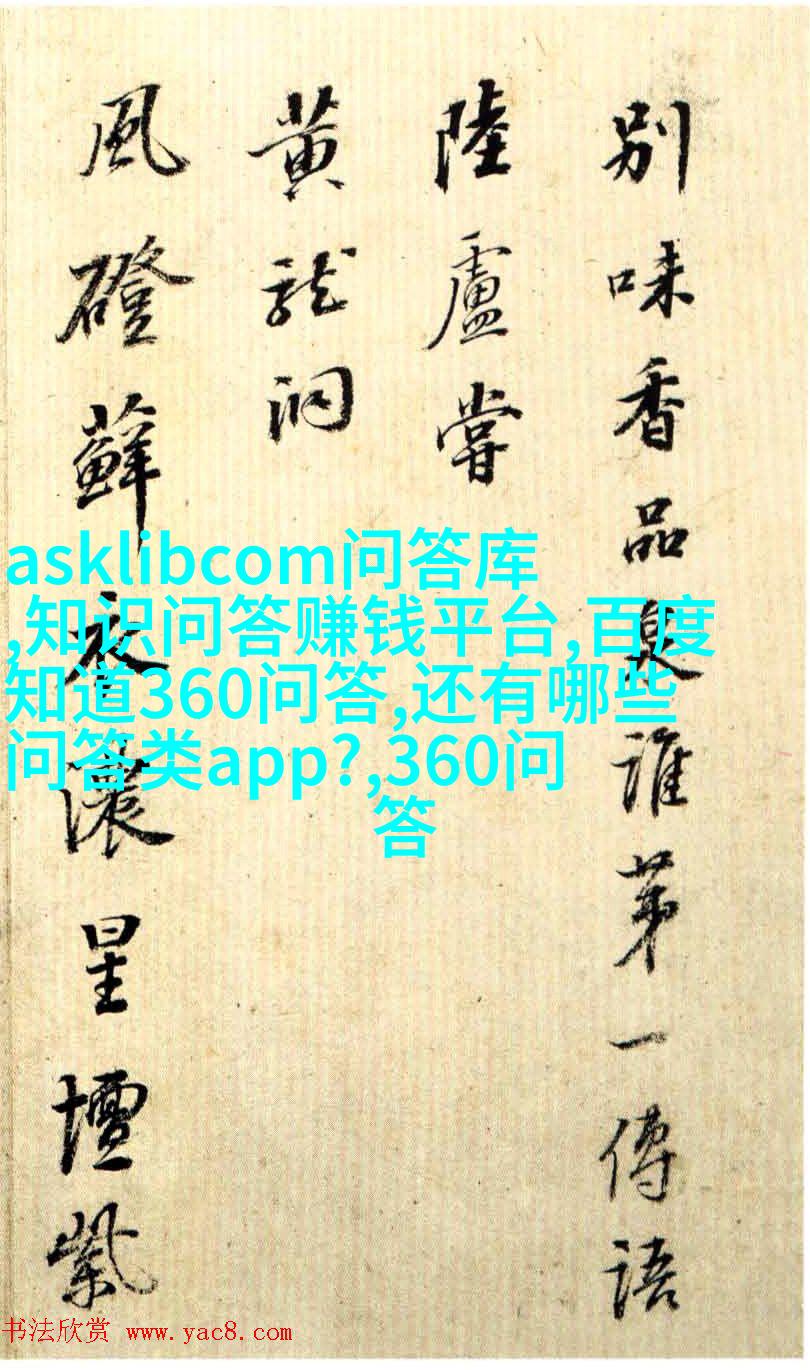 别味香品泉谁第一傳語
陸盧嘗
黄龍洞
風磴蘚衣濃星壇紫
asklibcom问答库
,知识问答赚钱平台,百度
知道360问答,还有哪些
问答类app?,360问
答
书法欣赏 www.yac8.com